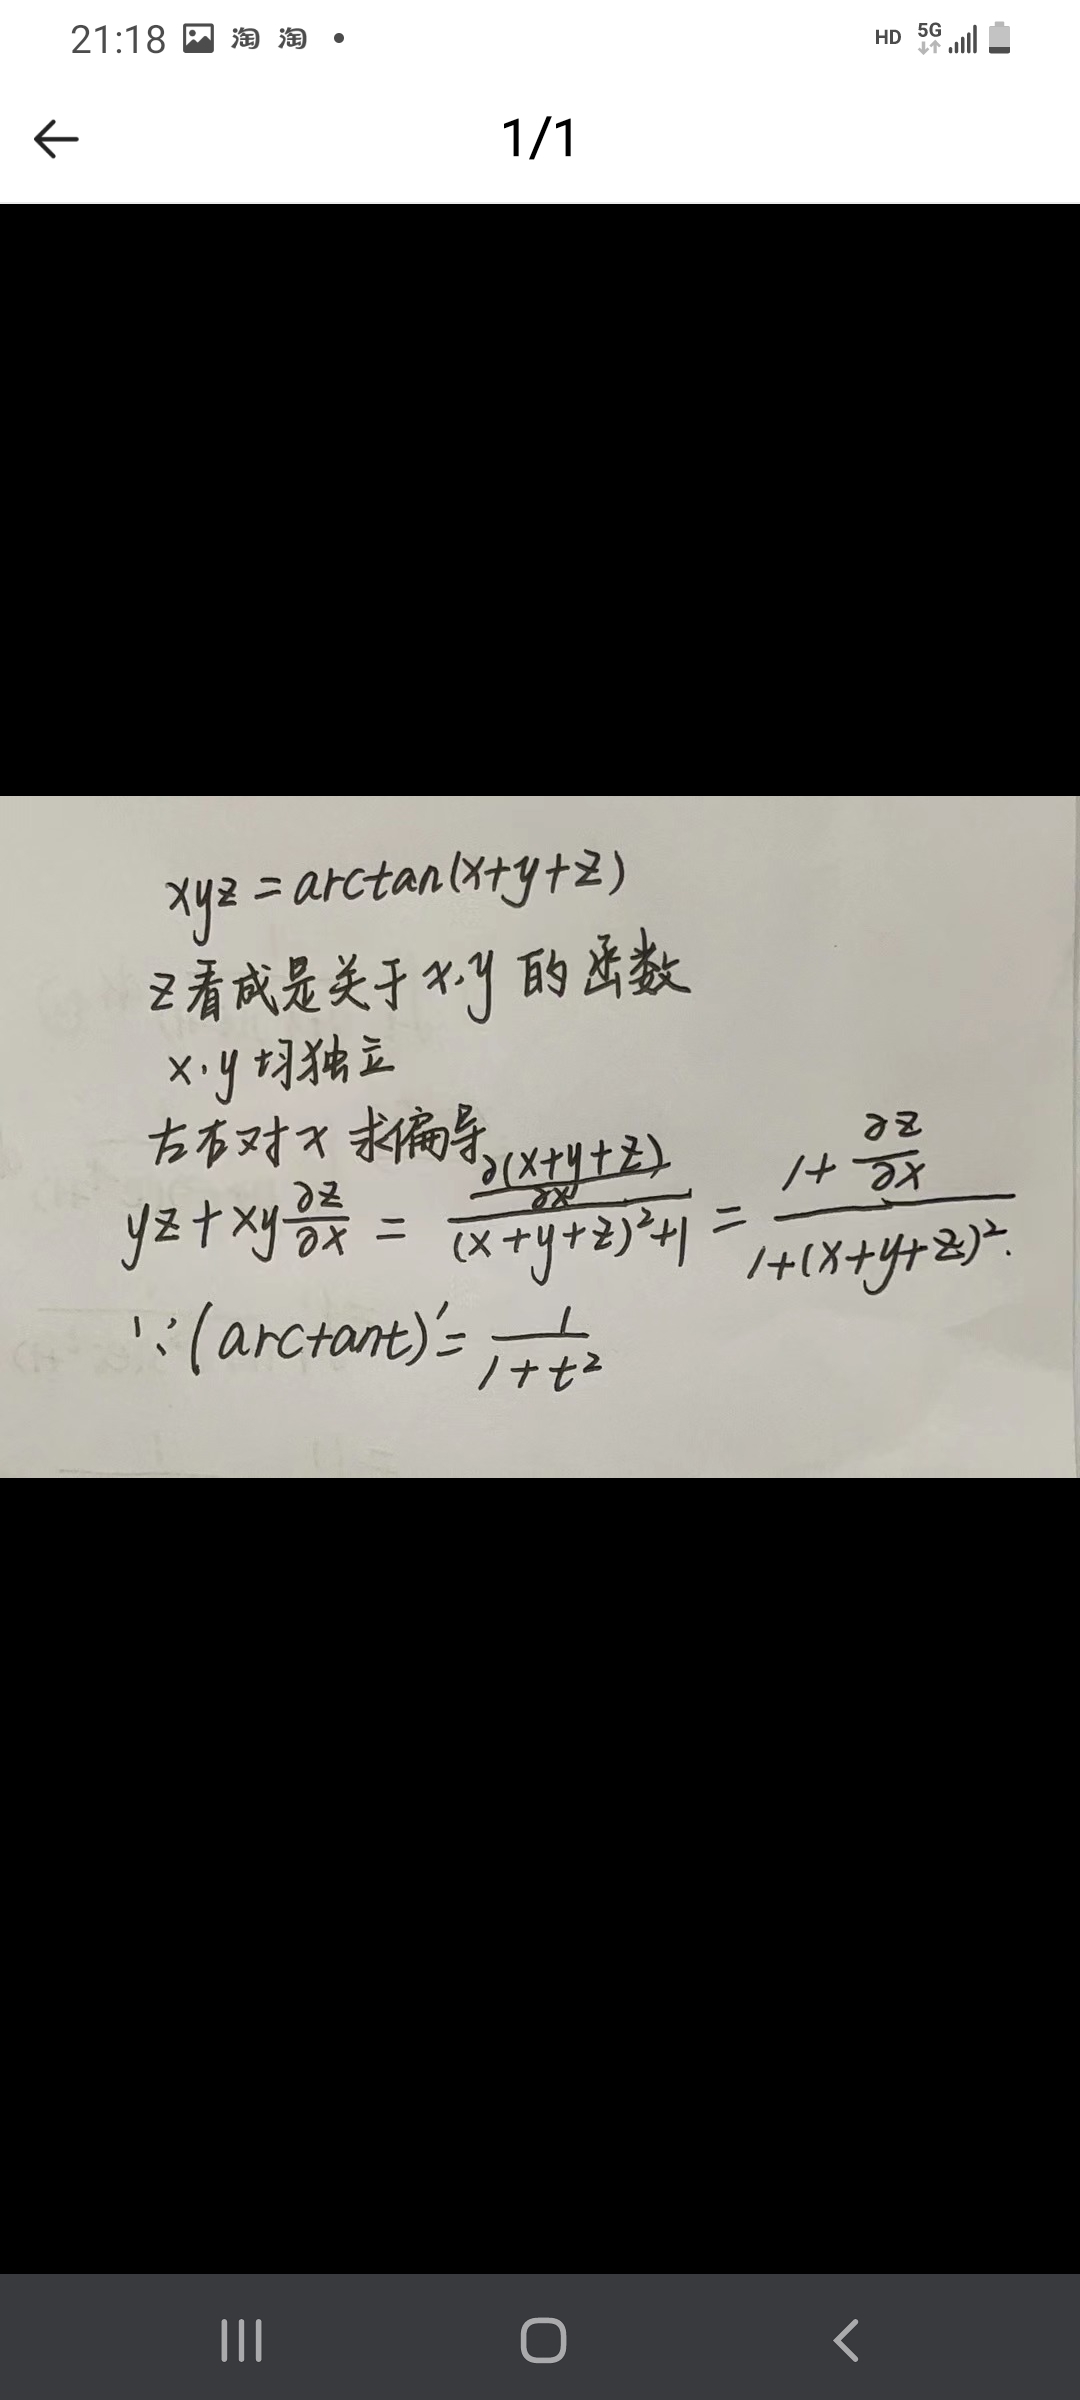 21:18 淘 淘 • HD 5G
1/1
xyz = arctan(x+y+z)
z看成是关于x,y的函数
x,y均独立
左右对x求偏导
yz+xy ∂z/∂x = (∂(x+y+z)/∂x)/((x+y+z)²+1) = (1+∂z/∂x)/(1+(x+y+z)²).
∵(arctant)′= 1/(1+t²)